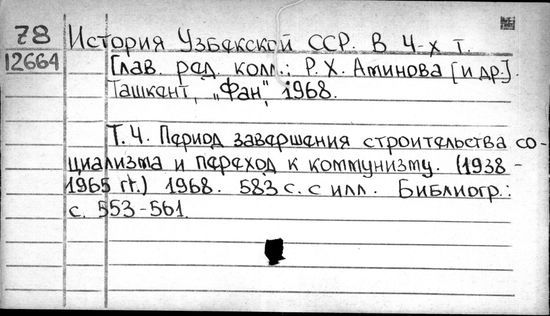 78
12664
История Узбекской ССР. В 4-х т.
[Глав. ред. колл.: Р. Х. Аминова [и др.].
Ташкент, „Фан", 1968.
Т. 4. Период завершения строительства со-
циализма и переход к коммунизму. (1938-
1965 гг.) 1968. 583 с. с илл. Библиогр.:
с. 553-561.